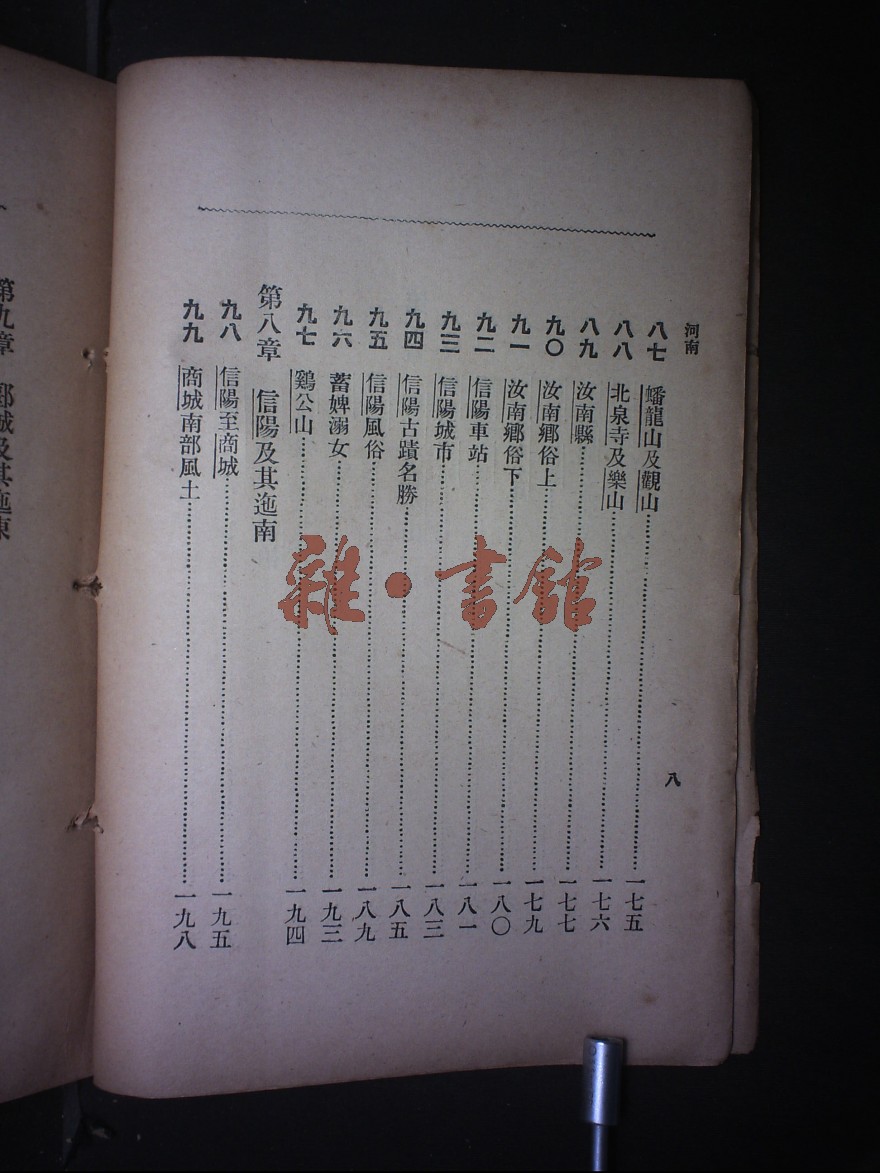 河南
八七　蟠龍山及觀山……一七五
八八　北泉寺及樂山……一七六
八九　汝南縣……一七七
九〇　汝南鄉俗上……一七九
九一　汝南鄉俗下……一八〇
九二　信陽車站……一八一
九三　信陽城市……一八三
九四　信陽古蹟名勝……一八五
九五　信陽風俗……一八九
九六　蓄婢溺女……一九三
九七　鷄公山……一九四
第八章　信陽及其迤南
九八　信陽至商城……一九五
九九　商城南部風土……一九八
八
雜·書館
第九章　郾城及其迤東